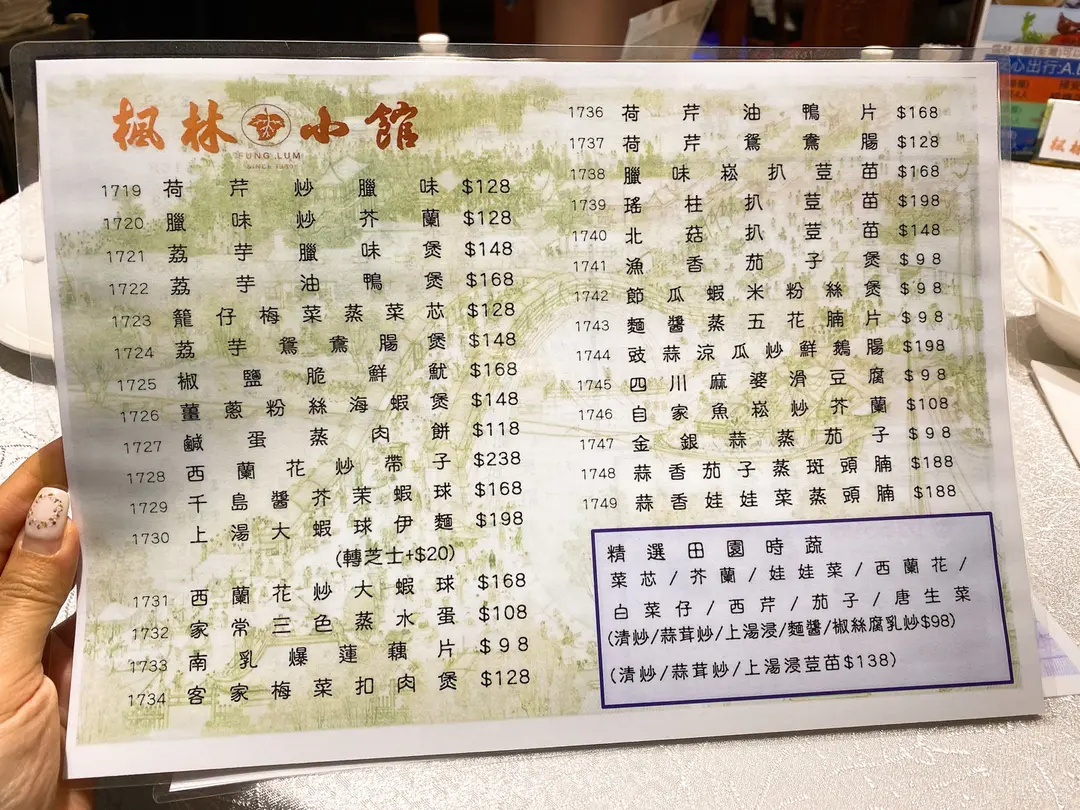 楓林小館
FUNG LUM
1719 荷芹炒臘味 $128
1720 臘味炒芥蘭 $128
1721 荔芋臘味煲 $148
1722 荔芋油鴨煲 $168
1723 籠仔梅菜蒸菜芯 $128
1724 荔芋鴛鴦腸煲 $148
1725 椒鹽脆鮮魷 $168
1726 薑蔥粉絲海蝦煲 $148
1727 鹹蛋蒸肉餅 $118
1728 西蘭花炒帶子 $238
1729 千島醬芥茉蝦球 $168
1730 上湯大蝦球伊麵 $198
(轉芝士+$20)
1731 西蘭花炒大蝦球 $168
1732 家常三色蒸水蛋 $108
1733 南乳爆蓮藕片 $98
1734 客家梅菜扣肉煲 $128
1736 荷芹油鴨片 $168
1737 荷芹鴛鴦腸 $128
1738 臘味崧扒荳苗 $168
1739 瑤柱扒荳苗 $198
1740 北菇扒荳苗 $148
1741 漁香茄子煲 $98
1742 節瓜蝦米粉絲煲 $98
1743 麵醬蒸五花腩片 $98
1744 豉蒜涼瓜炒鮮鵝腸 $198
1745 四川麻婆滑豆腐 $98
1746 自家魚崧炒芥蘭 $108
1747 金銀蒜蒸茄子 $98
1748 蒜香茄子蒸斑頭腩 $188
1749 蒜香娃娃菜蒸頭腩 $188
精選田園時蔬
菜芯/芥蘭/娃娃菜/西蘭花/
白菜仔/西芹/茄子/唐生菜
(清炒/蒜茸炒/上湯浸/麵醬/椒絲腐乳炒$98)
(清炒/蒜茸炒/上湯浸荳苗$138)